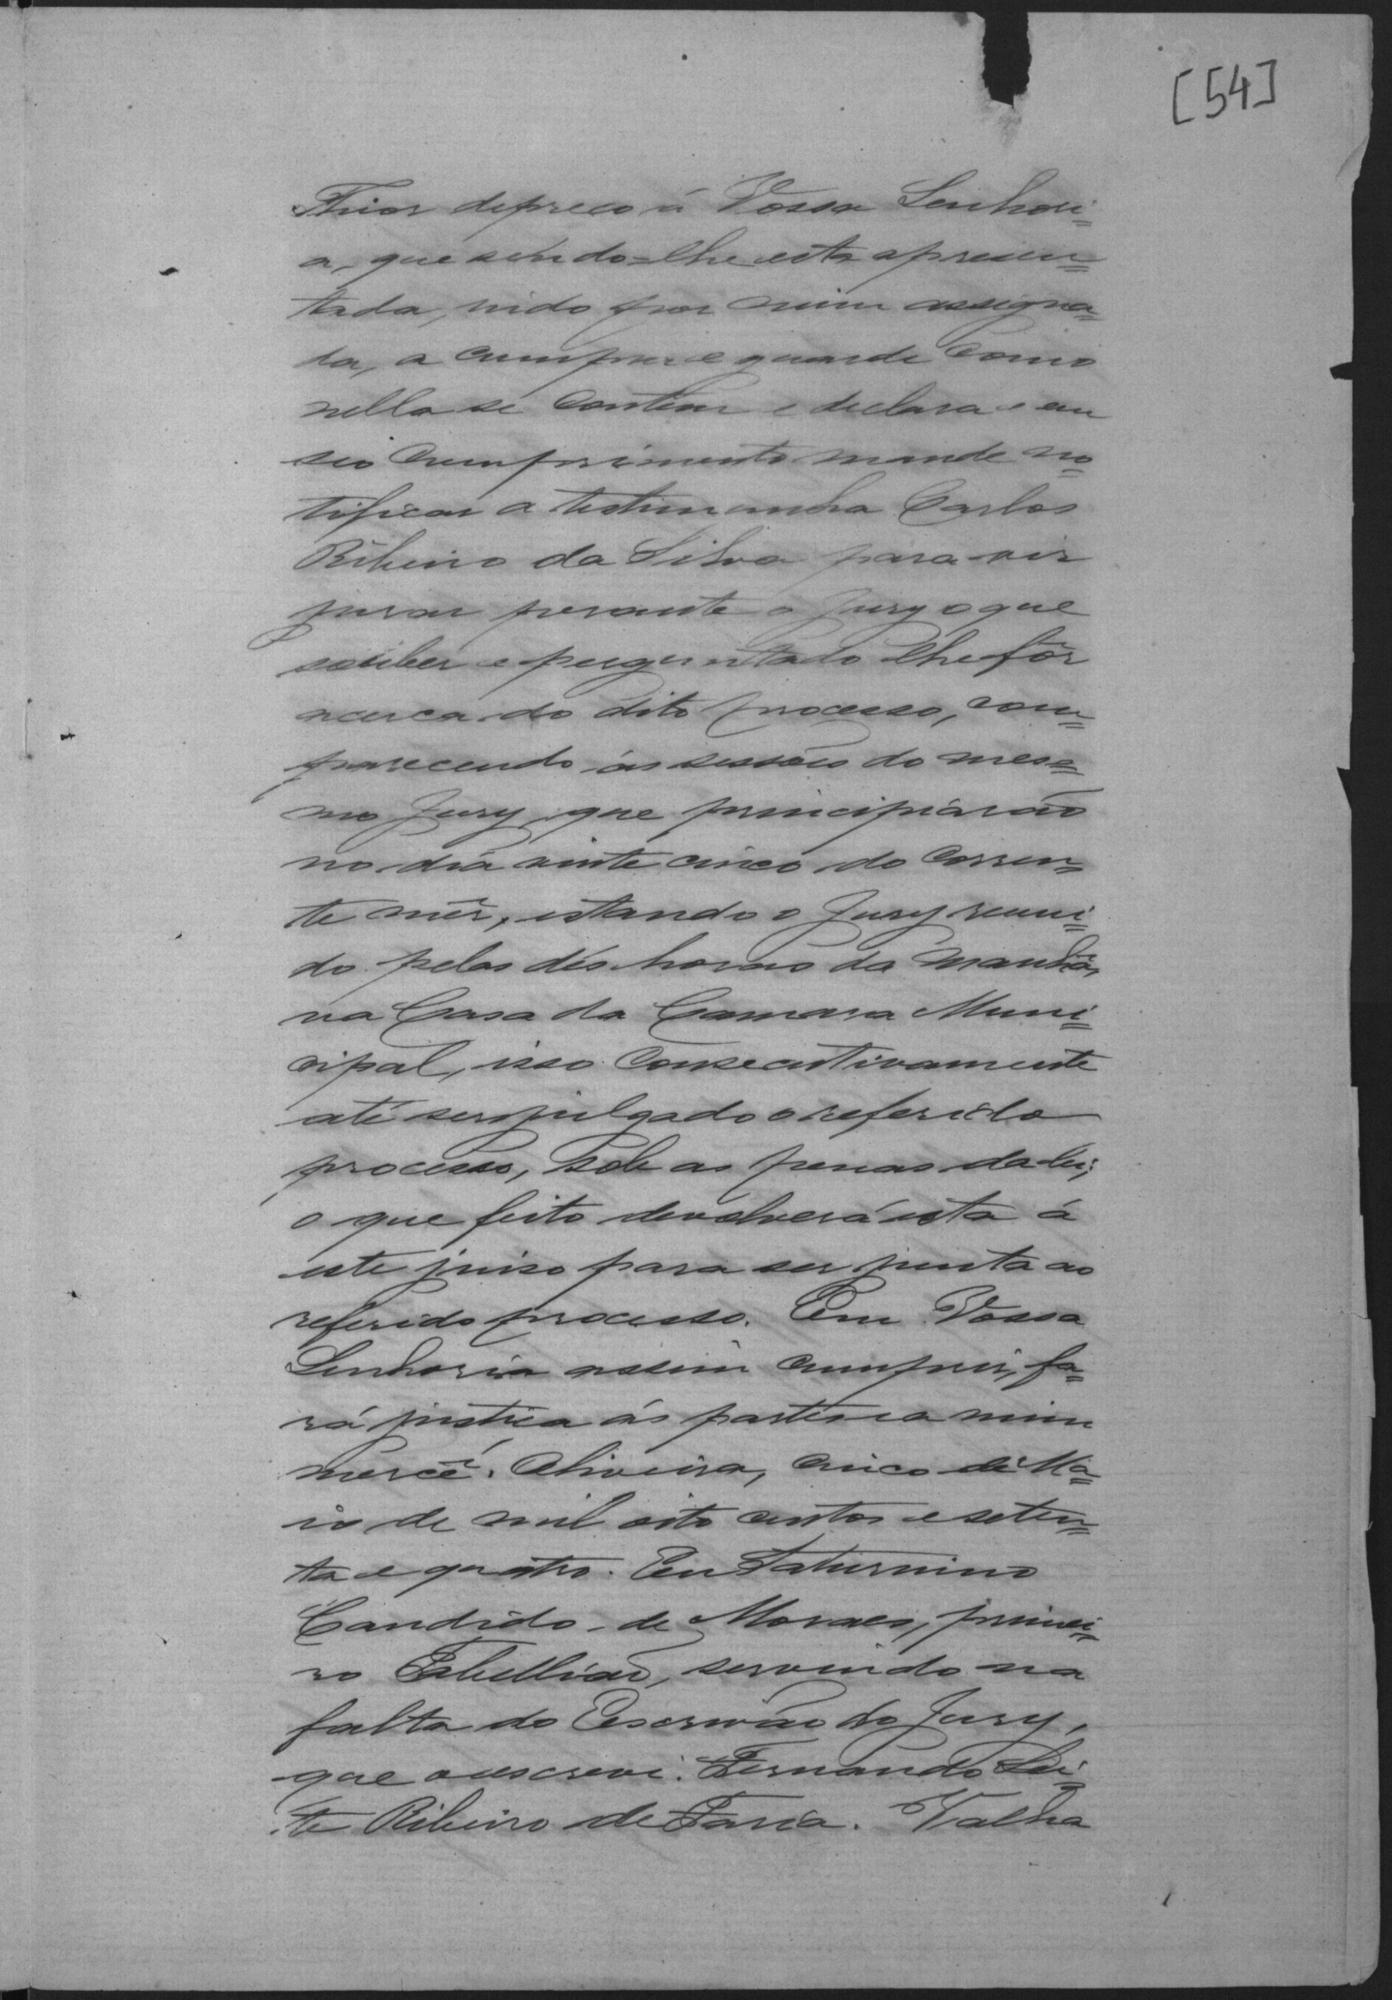 [54]
Thior depreco á Vossa Senhori=
a, que sendo-lhe esta apresen=
tada, indo por mim assigna=
da, a cumpra e guarde como
nella se contem e declara e em
seo cumprimento mande no=
tificar a testimunha Carlos
Ribeiro da Silva para vir
jurar perante o Jury o que
souber e perguntado lhe fôr
acerca do dito processo, com=
parecendo ás sessões do mes=
mo Jury, que principiarão
no dia vinte cinco do corren=
te mêz, estando o Jury reuni=
do pelas dés horas da manhã,
na Casa da Camara Muni=
cipal, isso consecutivamente
até ser julgado o referido
processo, sob as penas da lei;
o que feito devolverá esta á
este juiso para ser junta ao
referido processo. Em Vossa
Senhoria assim cumprir, fa=
rá justiça ás partes e a mim
mercê. Oliveira, cinco de Ma=
io de mil oito centos e seten=
ta e quatro. Eu Saturnino
Candido de Moraes, primei=
ro Tabellião, servindo na
falta do Escrivão do Jury,
que o escrevi. Fernando Lei=
te Ribeiro de Faria. Valha